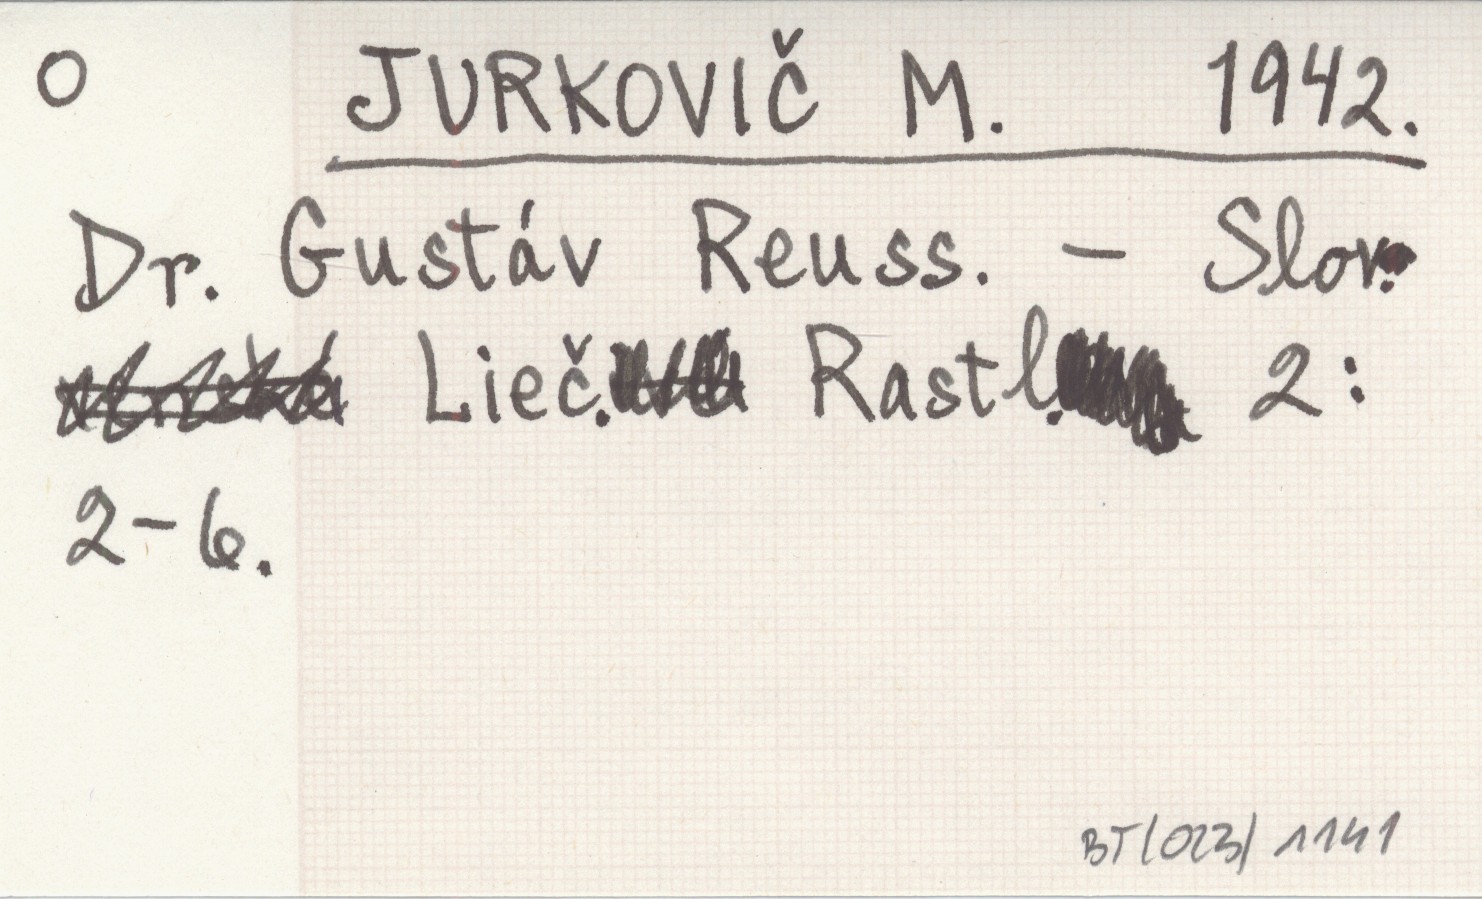 O JURKOVIČ M. 1942.
Dr. Gustáv Reuss. – Slov.
Lieč. Rastl. 2:
2–6.
BT/023/1141